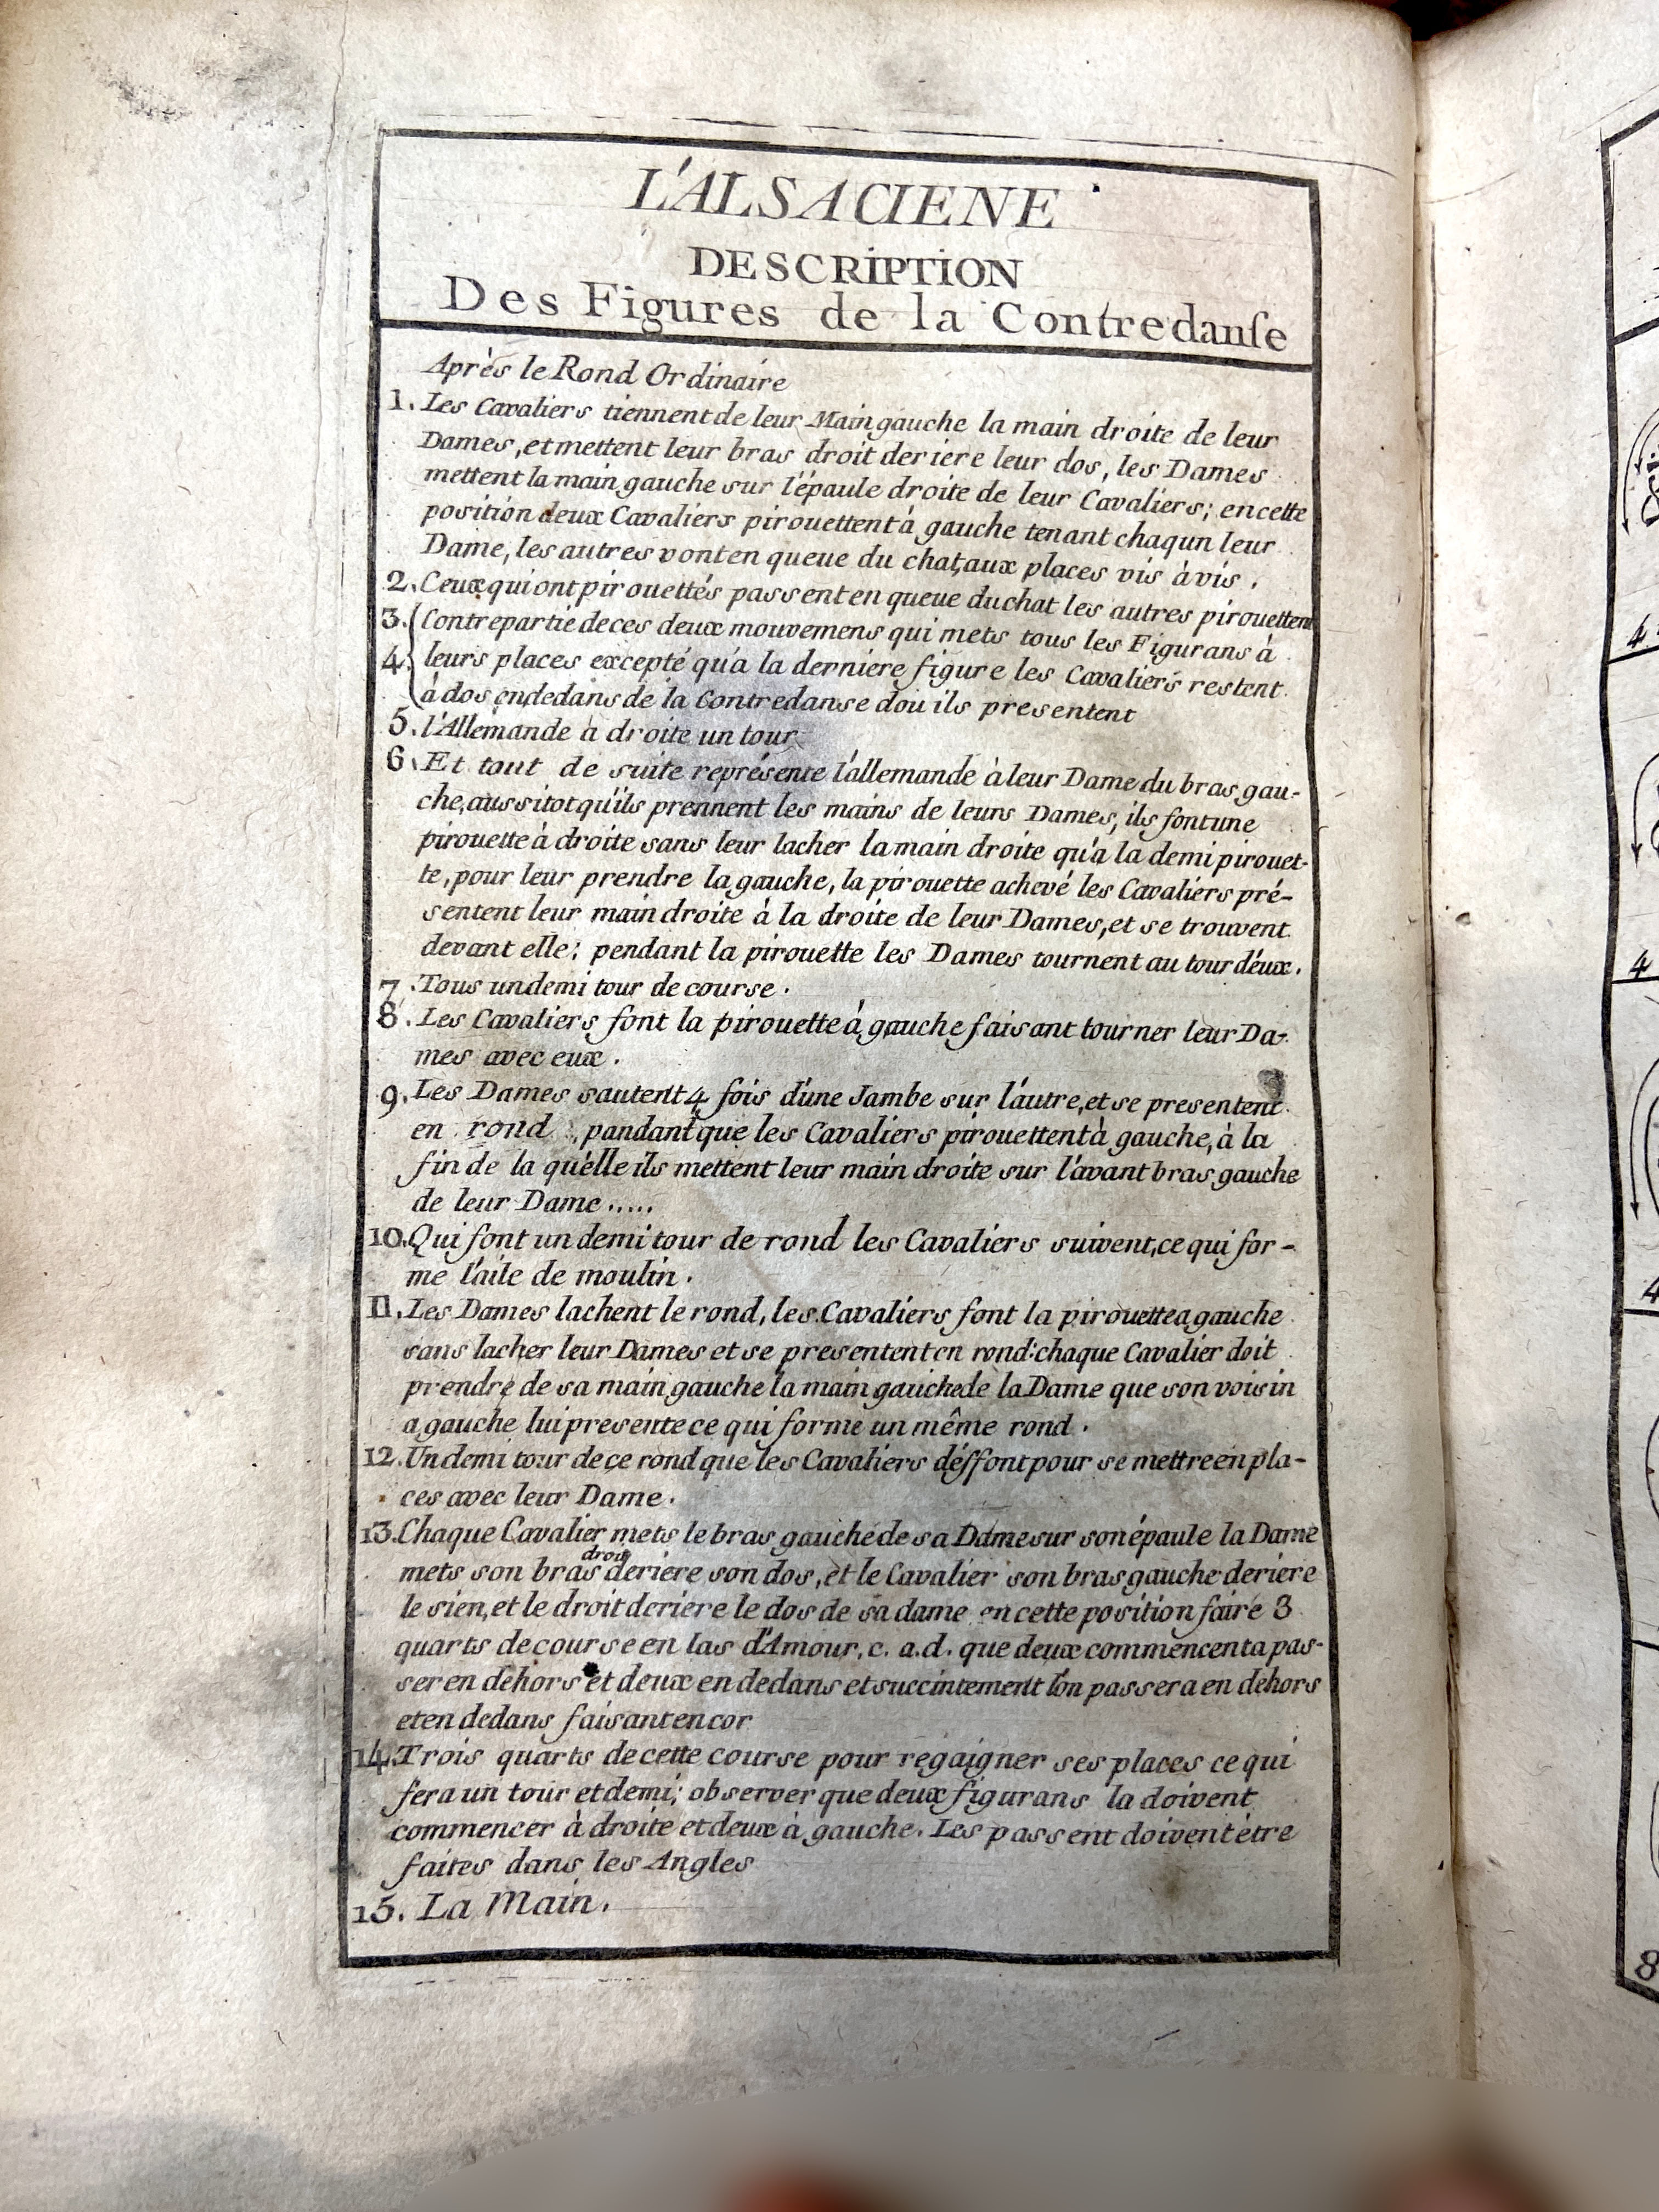 L'ALSACIENE
DESCRIPTION
Des Figures de la Contredanse
Après le Rond Ordinaire
1. Les Cavaliers tiennent de leur Main gauche la main droite de leur
Dames, et mettent leur bras droit deriere leur dos, les Dames
mettent la main gauche sur l'épaule droite de leur Cavaliers; en cette
position deux Cavaliers pirouettent à gauche tenant chaqun leur
Dame, les autres vont en queue du chat, aux places vis à vis.
2. Ceux qui ont pirouettés passent en queue du chat les autres pirouettent
3. Contrepartie de ces deux mouvemens qui mets tous les Figurans à
4. leurs places excepté qu'a la derniere figure les Cavaliers restent
à dos en dedans de la Contredanse dou ils presentent
5. l'Allemande à droite un tour
6. Et tout de suite représente l'allemande à leur Dame du bras gau-
che, aussitot qu'ils prennent les mains de leurs Dames, ils font une
pirouette à droite sans leur lacher la main droite qu'a la demi pirouet-
te, pour leur prendre la gauche, la pirouette achevé les Cavaliers pré-
sentent leur main droite à la droite de leur Dames, et se trouvent
devant elle; pendant la pirouette les Dames tournent au tour d'eux.
7. Tous un demi tour de course.
8. Les Cavaliers font la pirouette à gauche faisant tourner leur Da-
mes avec eux.
9. Les Dames sautent 4 fois d'une Jambe sur l'autre, et se presentent
en rond, pandant que les Cavaliers pirouettent à gauche, à la
fin de la qu'elle ils mettent leur main droite sur l'avant bras gauche
de leur Dame.....
10. Qui font un demi tour de rond les Cavaliers suivent, ce qui for-
me l'aile de moulin.
11. Les Dames lachent le rond, les Cavaliers font la pirouette a gauche
sans lacher leur Dames et se presentent en rond: chaque Cavalier doit
prendre de sa main gauche la main gauche de la Dame que son voisin
a gauche lui presente ce qui forme un même rond.
12. Un demi tour de ce rond que les Cavaliers déffont pour se mettre en pla-
ces avec leur Dame.
13. Chaque Cavalier mets le bras gauche de sa Dame sur son épaule la Dame
droit
mets son bras deriere son dos, et le Cavalier son bras gauche deriere
le sien, et le droit deriere le dos de sa dame en cette position faire 3
quarts de course en las d'Amour, c. a. d. que deux commencent a pas-
ser en dehors et deux en dedans et succintement l'on passera en dehors
et en dedans faisant encor
14. Trois quarts de cette course pour regaigner ses places ce qui
fera un tour et demi; observer que deux figurans la doivent
commencer à droite et deux à gauche. Les passent doivent étre
faites dans les Angles
15. La Main.
4
4
4
8